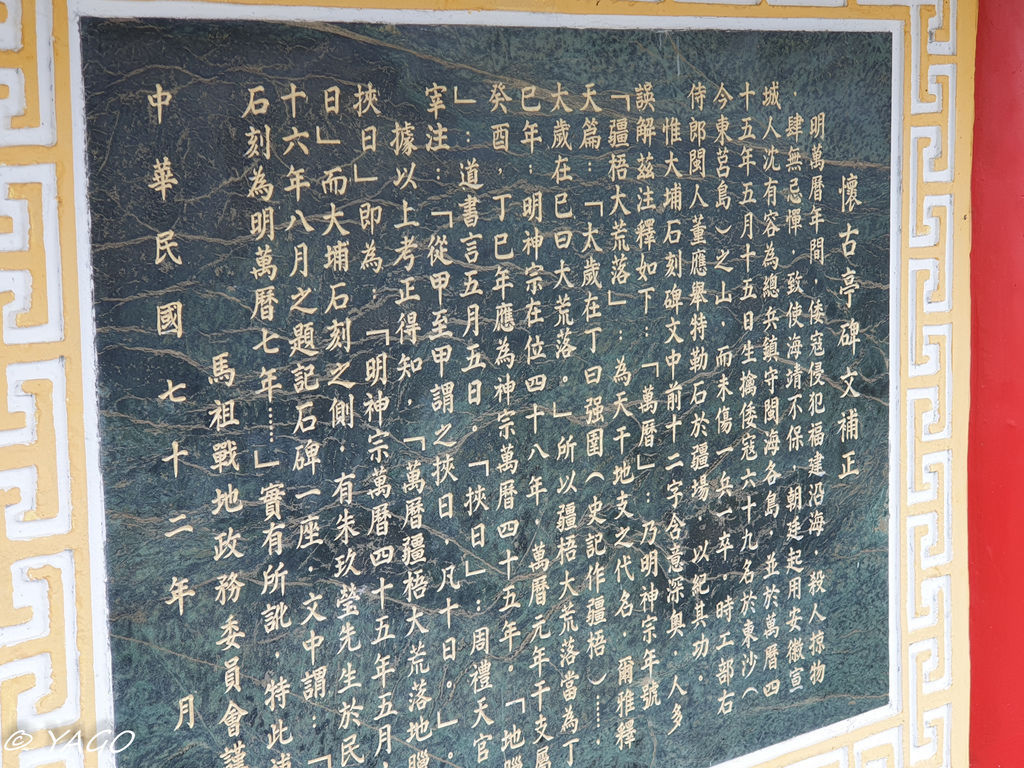 懷古亭碑文補正
明萬曆年間，倭寇侵犯福建沿海，殺人掠物
，肆無忌憚，致使海靖不保，朝廷起用安徽宣
城人沈有容為總兵鎮守閩海各島，並於萬曆四
十五年五月十五日生擒倭寇六十九名於東沙（
今東莒島）之山，而未傷一兵一卒。時工部右
侍郎閩人董應舉特勒石於疆場，以紀其功。
惟大埔石刻碑文中前十二字含意深奥，人多
誤解茲注釋如下：「萬曆」：乃明神宗年號
「疆梧大荒落」：為天干地支之代名，爾雅釋
天篇：「太歲在丁曰强圉（史記作疆梧）……
太歲在巳曰大荒落。」所以疆梧大荒落當為丁
巳年；明神宗在位四十八年，萬曆元年干支屬
癸酉，丁巳年應為神宗萬曆四十五年。「地臘
」：道書言五月五日。「挾日」：周禮天官
宰注：「從甲至甲謂之挾日，凡十日。」。
據以上考正得知，「萬曆疆梧大荒落地臘
挾日」即為「明神宗萬曆四十五年五月
日」而大埔石刻之側，有朱玖瑩先生於民
十六年八月之題記石碑一座，文中謂：「
石刻為明萬曆七年……」實有所訛，特此
馬祖戰地政務委員會謹
中華民國七十二年 月
© YAGO